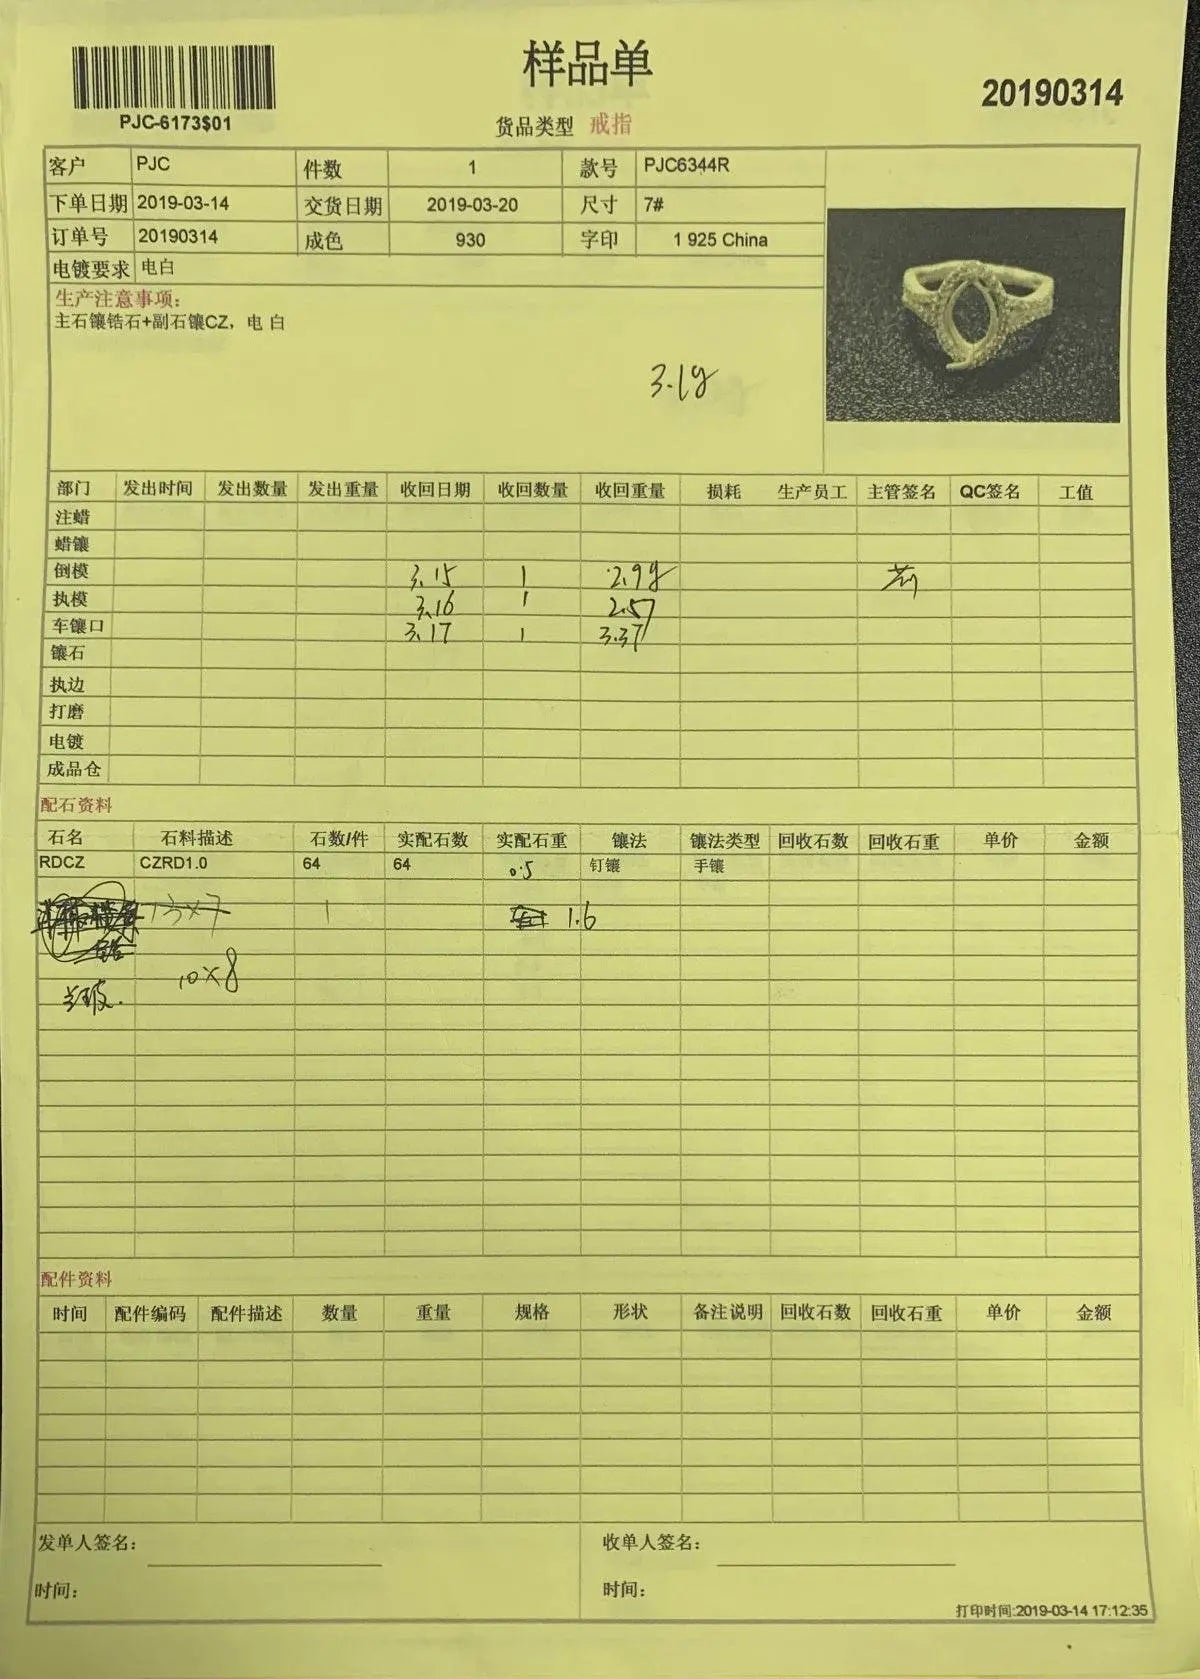 样品单
20190314
PJC-6173$01
货品类型 戒指
客户 PJC 件数 1 款号 PJC6344R
下单日期 2019-03-14 交货日期 2019-03-20 尺寸 7#
订单号 20190314 成色 930 字印 1 925 China
电镀要求 电白
生产注意事项:
主石镶锆石+副石镶CZ，电 白
3.1g
部门 发出时间 发出数量 发出重量 收回日期 收回数量 收回重量 损耗 生产员工 主管签名 QC签名 工值
注蜡
蜡镶
倒模 3.15 1 2.9g
执模 3.16 1 2.57
车镶口 3.17 1 3.37
镶石
执边
打磨
电镀
成品仓
配石资料
石名 石料描述 石数/件 实配石数 实配石重 镶法 镶法类型 回收石数 回收石重 单价 金额
RDCZ CZRD1.0 64 64 0.5 钉镶 手镶
13×7 1 1.6
10×8
配件资料
时间 配件编码 配件描述 数量 重量 规格 形状 备注说明 回收石数 回收石重 单价 金额
发单人签名: 收单人签名:
时间: 时间:
打印时间:2019-03-14 17:12:35